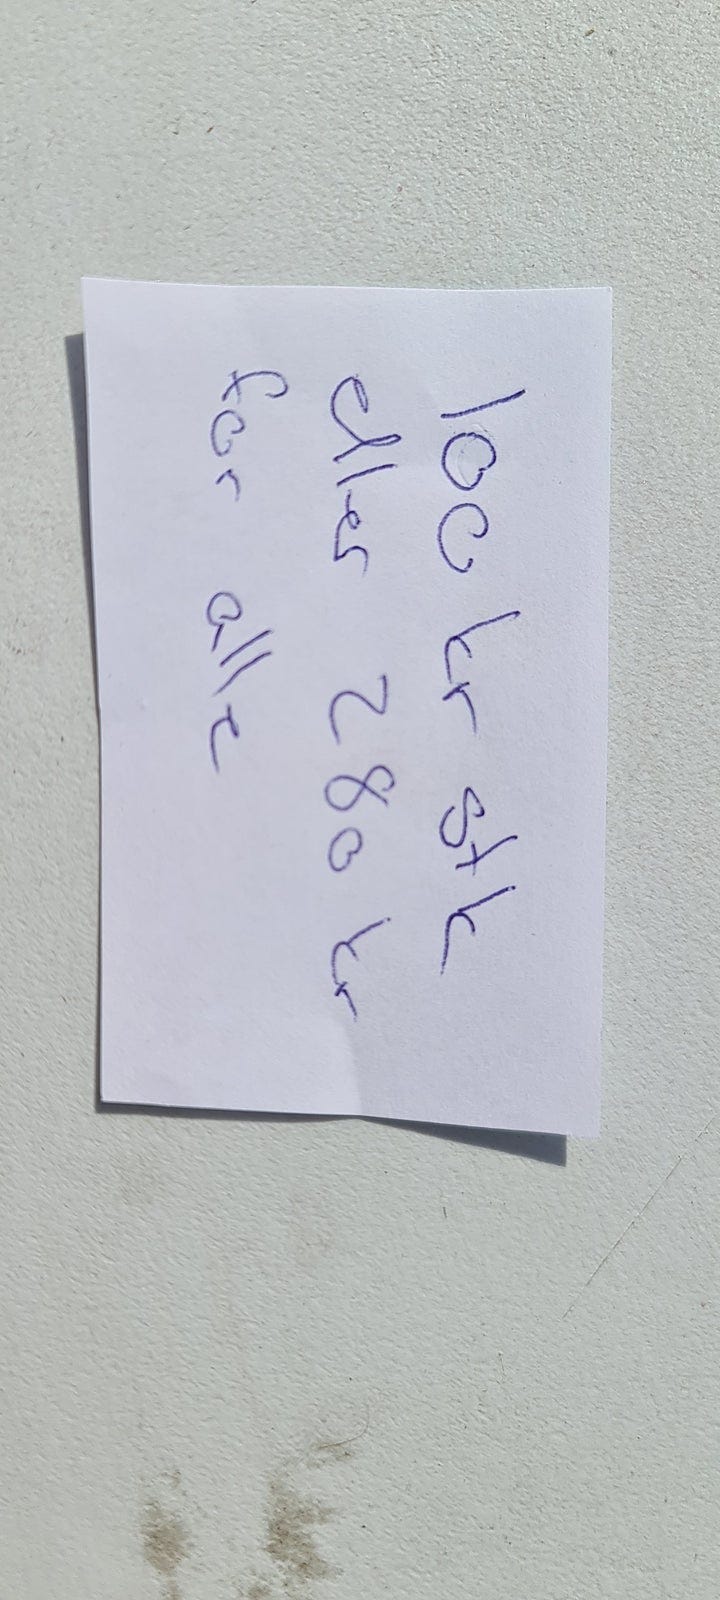 100 kr stk
eller 280 kr
for alle